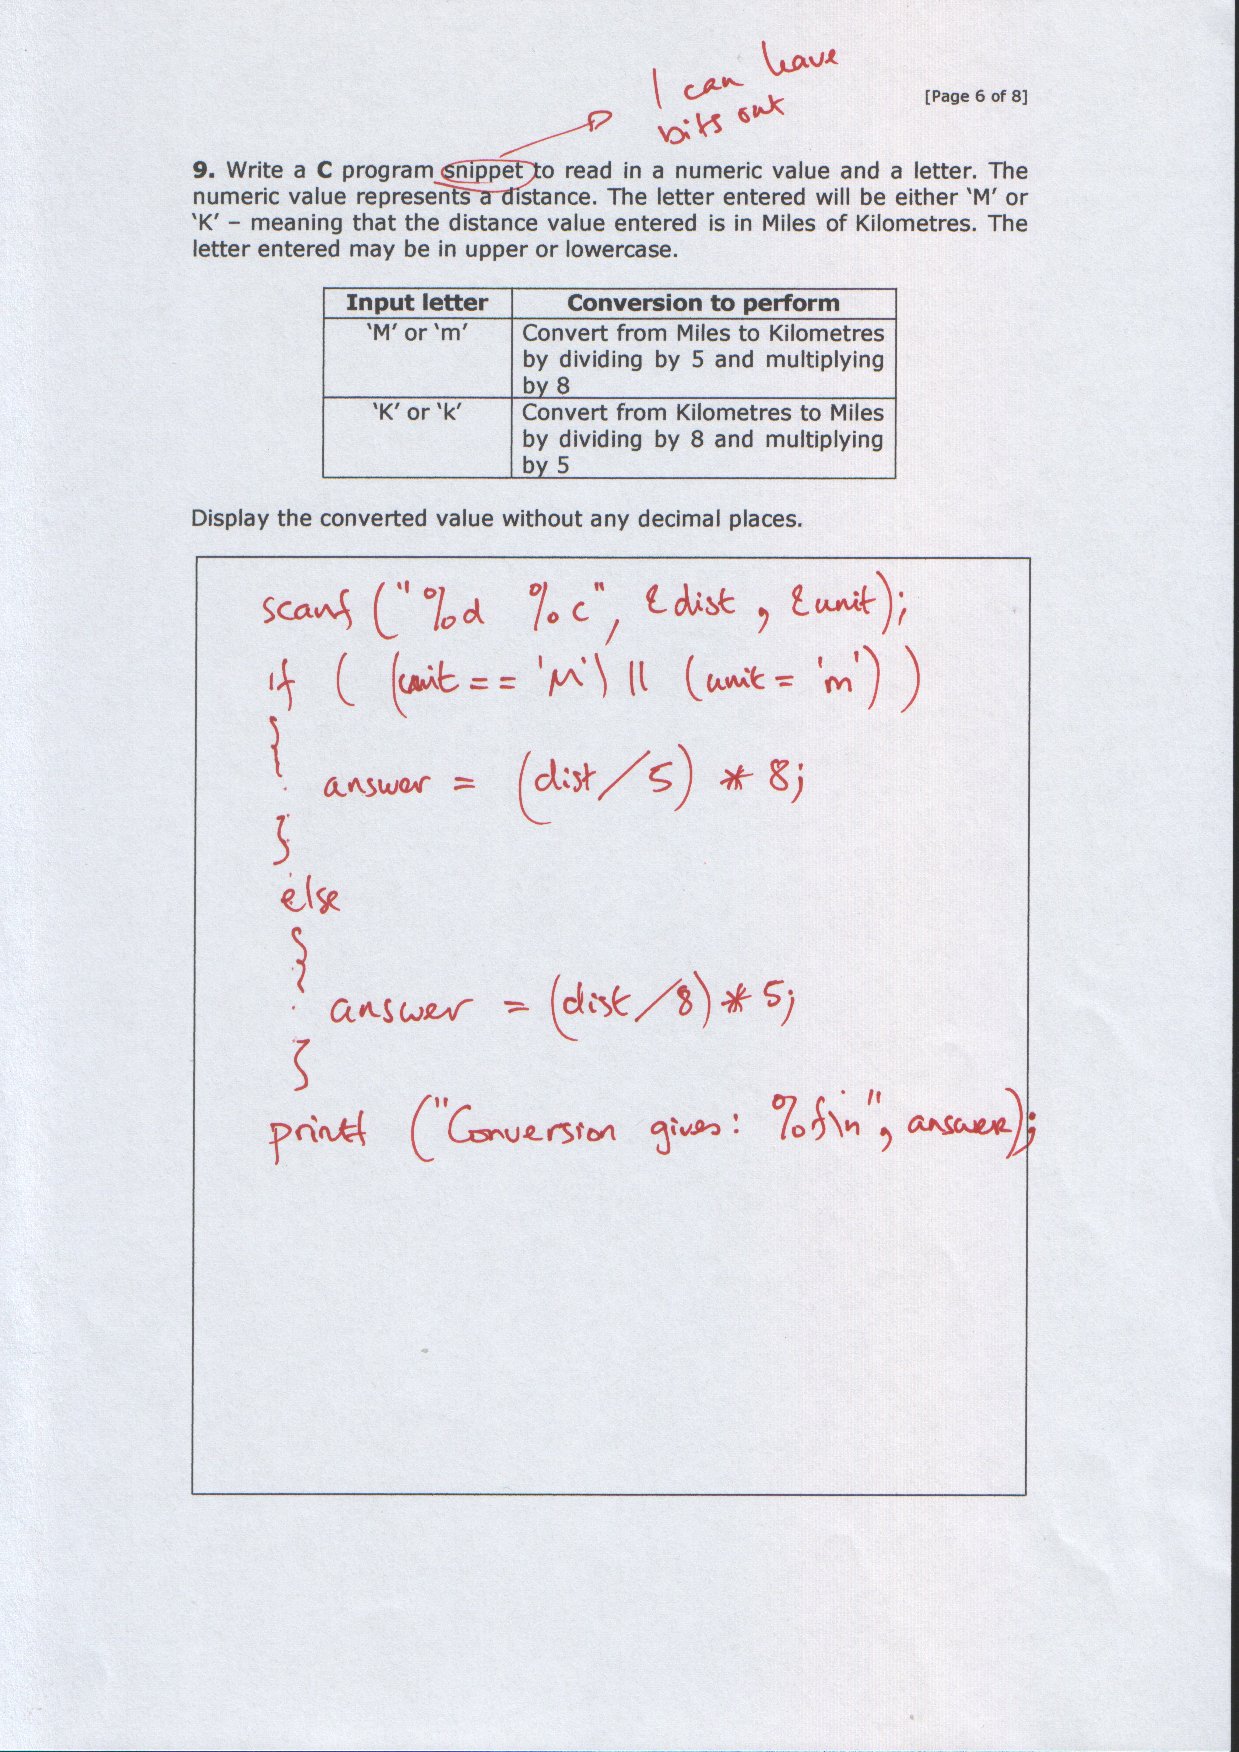 I can have
bits out
[Page 6 of 8]
9. Write a C program snippet to read in a numeric value and a letter. The
numeric value represents a distance. The letter entered will be either ‘M’ or
‘K’ – meaning that the distance value entered is in Miles of Kilometres. The
letter entered may be in upper or lowercase.
Input letter Conversion to perform
‘M’ or ‘m’ Convert from Miles to Kilometres
by dividing by 5 and multiplying
by 8
‘K’ or ‘k’ Convert from Kilometres to Miles
by dividing by 8 and multiplying
by 5
Display the converted value without any decimal places.
scanf ("%d %c", &dist, &unit);
if ( (unit == 'M') || (unit = 'm') )
{
answer = (dist/5) * 8;
}
else
{
answer = (dist/8) * 5;
}
printf ("Conversion gives: %f\n", answer);